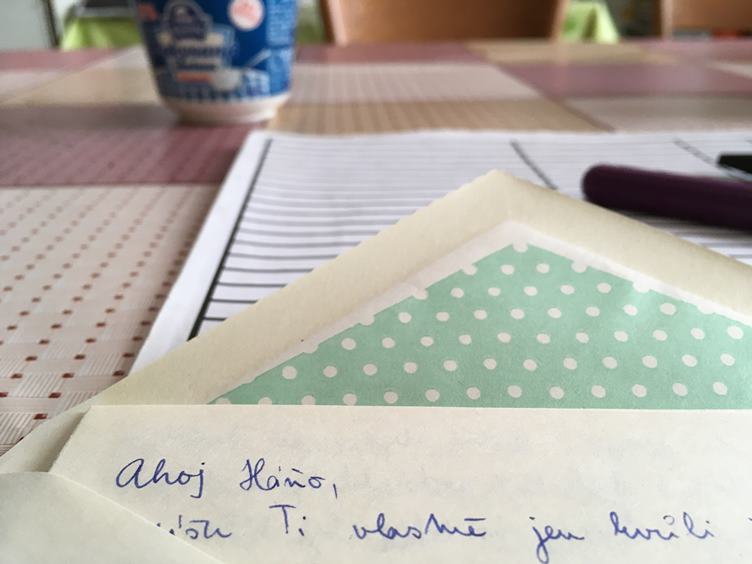 Ahoj Háňo,
Ti vlastně jen kvůli